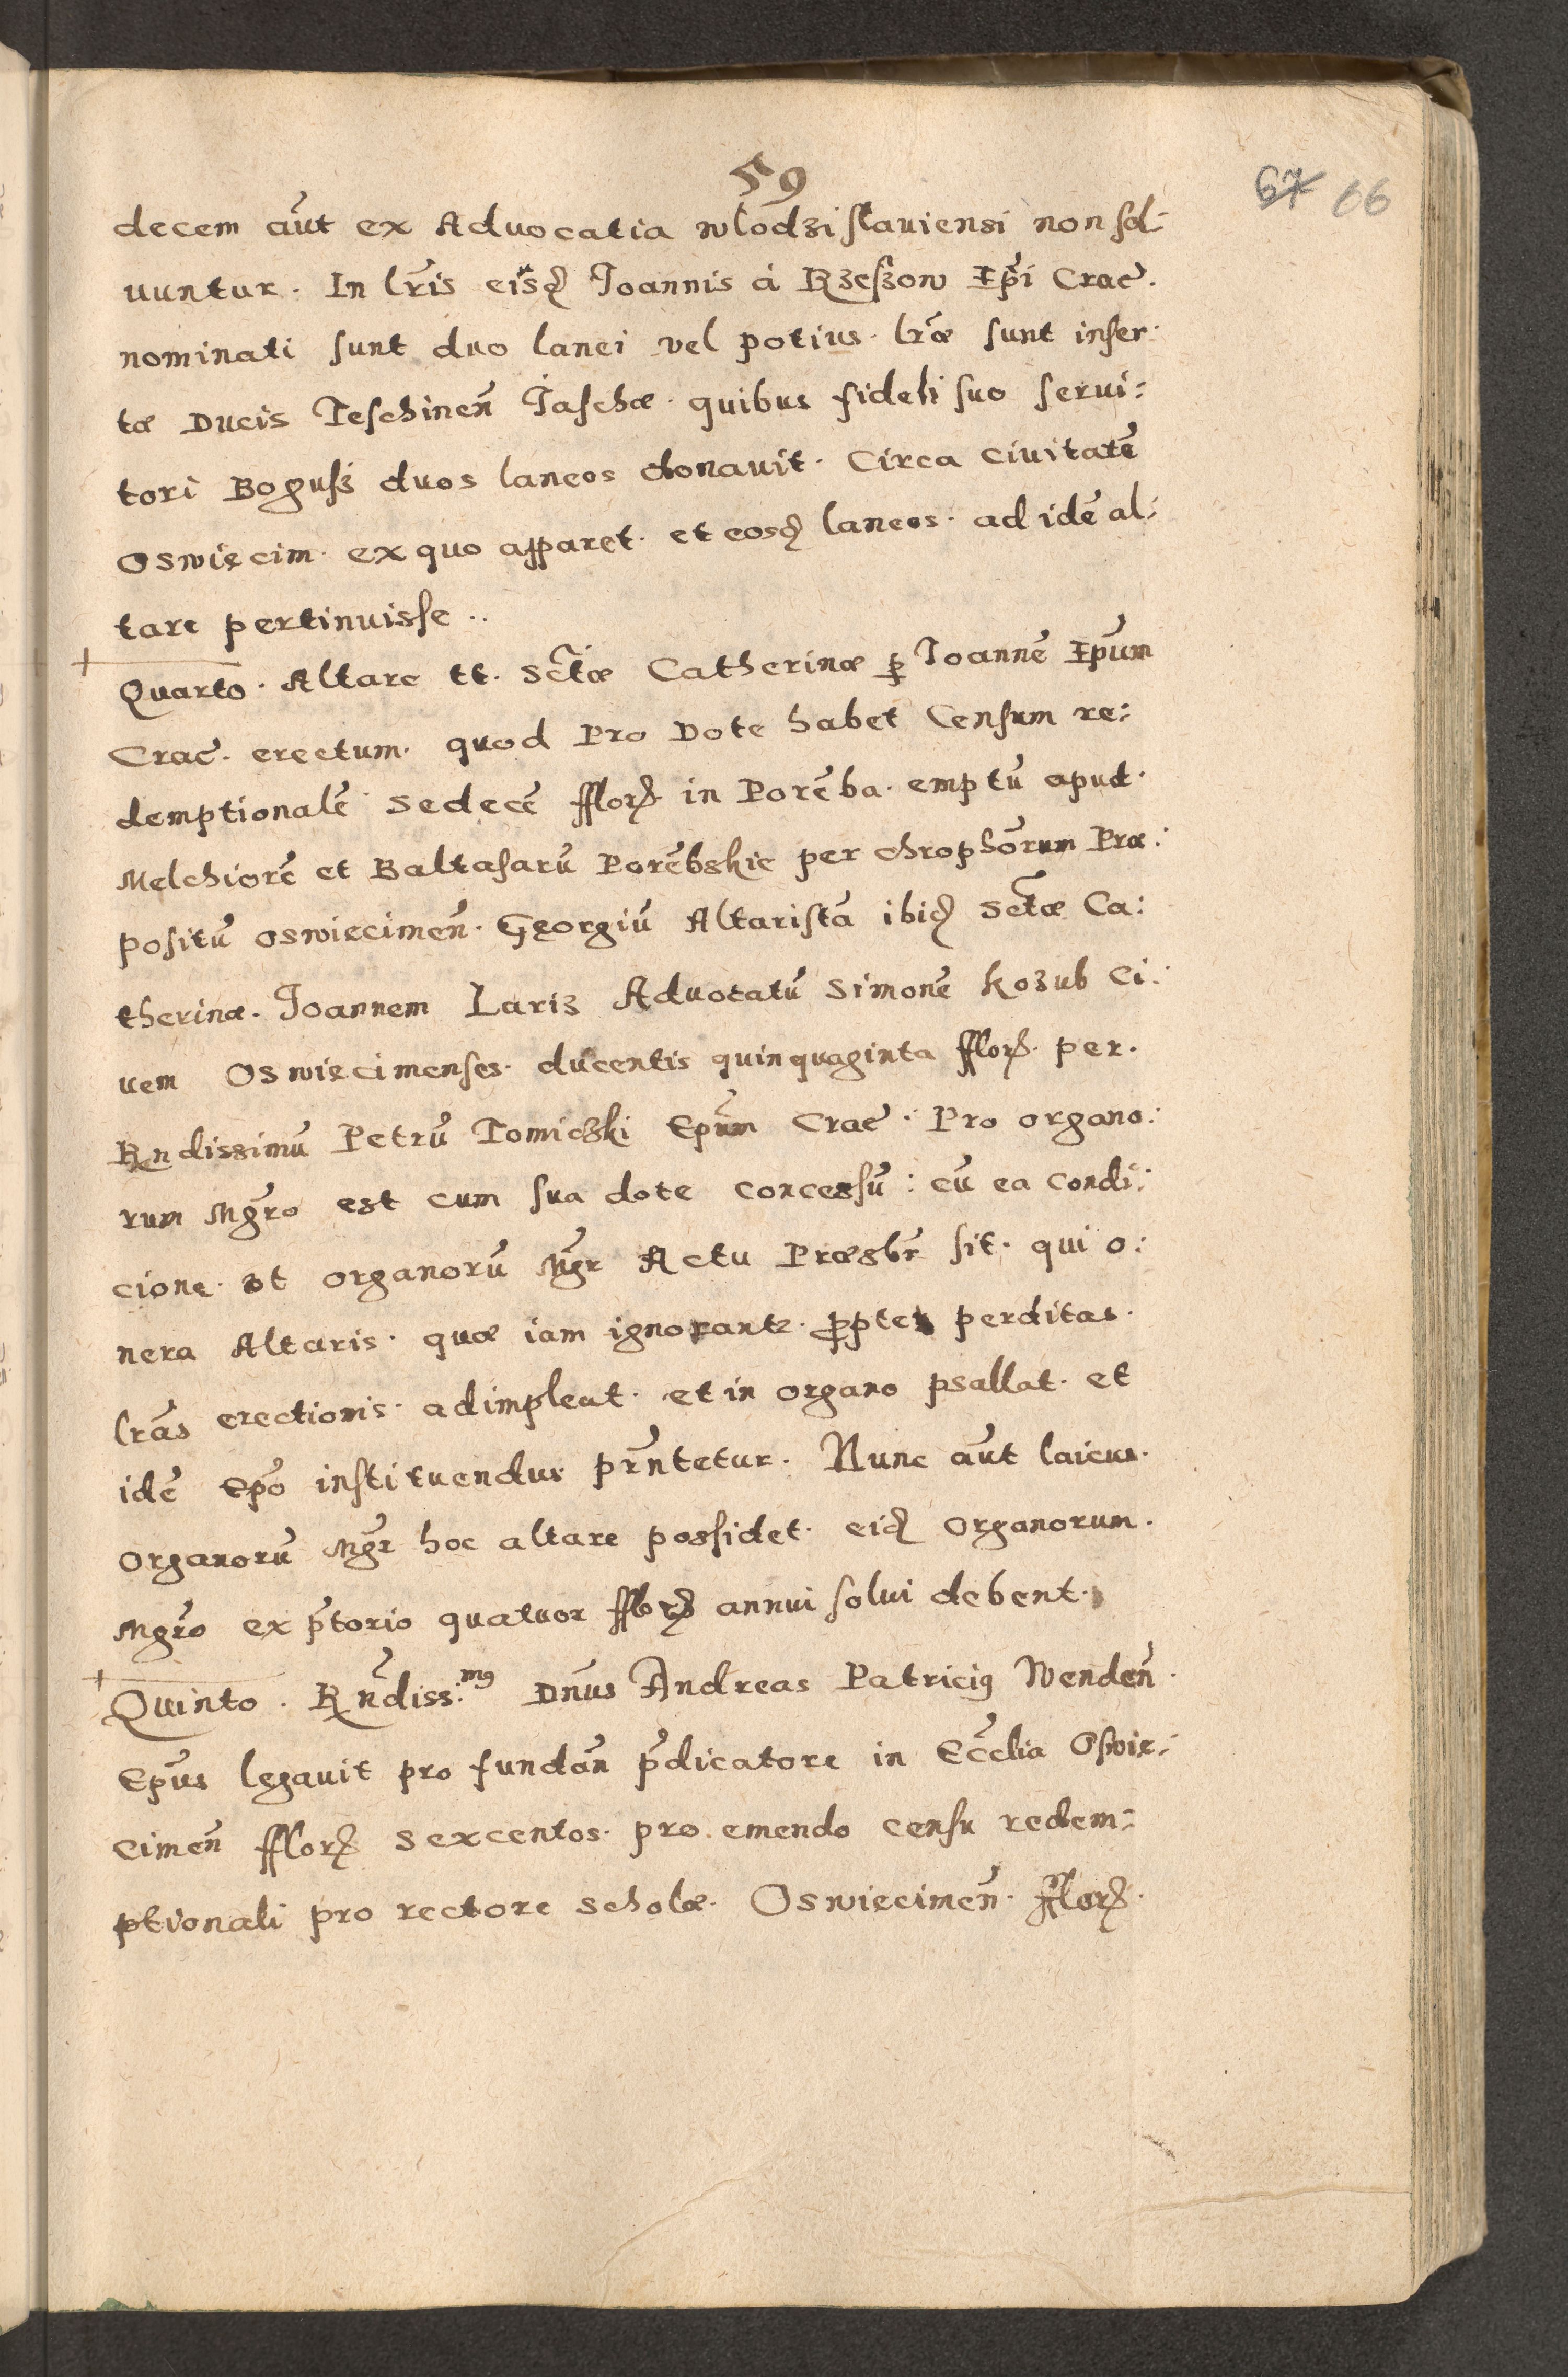 59
67 66
decem aūt ex Advocatia wlodziſlaviensi non ſol-
uuntur. In lr̄is eisd Joannis á Rzeſzow Ep̄i Crac̄.
nominati ſunt duo lanei vel potius. lr̄æ sunt inſer-
tæ Ducis Teſchinen̄ Jaſchæ. quibus fideli ſuo ſerui:
tori Boguſz duos laneos donauit. Circa ciuitatē
Oswięcim. ex quo apparet. et eosd laneos. ad idē al:
tare pertinuisſe..
Quarto. Altare tt. Sctæ Catherinæ ꝑ Joannē Ep̄um
Crac̄. erectum. quod Pro Dote habet Cenſum re:
demptionalē sedecē fflor in Porēba. emptū apud.
Melchiorē et Baltaſarū Porēbskie per chrophōrum Præ:
poſitū oswiecimen̄. Georgiū Altariſtā ibid Sctæ Ca:
therinæ. Joannem Lariz Advocatū Simonē kozub Ci:
uem Oswięcimenſes. ducentis quinquaginta fflor. per.
Rndissimū Petrū Tomiczki Ep̄um Crac̄. Pro organo:
rum Mgr̄o est cum ſua dote concesſū: cū ea condi:
cione. ut organorū Mgr̄ Actu Præsbr̄ ſit. qui o:
nera Altaris. quæ iam ignorant. ꝓpter perditas.
lrās erectionis. adimpleat. et in organo psallat. et
idē Ep̄o inſtituendus pr̄ntetur. Nunc aūt laicus.
organorū Mgr̄ hoc altare posſidet. eid Organorum.
Mgr̄o ex p̄torio quatuor fflor annui ſolui debent.
Quinto. Rn̄diss:mꝯ Dn̄us Andreas Patriciꝯ Wenden̄.
Ep̄us legauit pro fundan̄ p̄dicatore in Ecc̄lia Oſwie:
cimen̄ fflor sexcentos. pro emendo cenſu redem:
ptionali pro rectore scholæ. Oswiecimen̄. fflor.